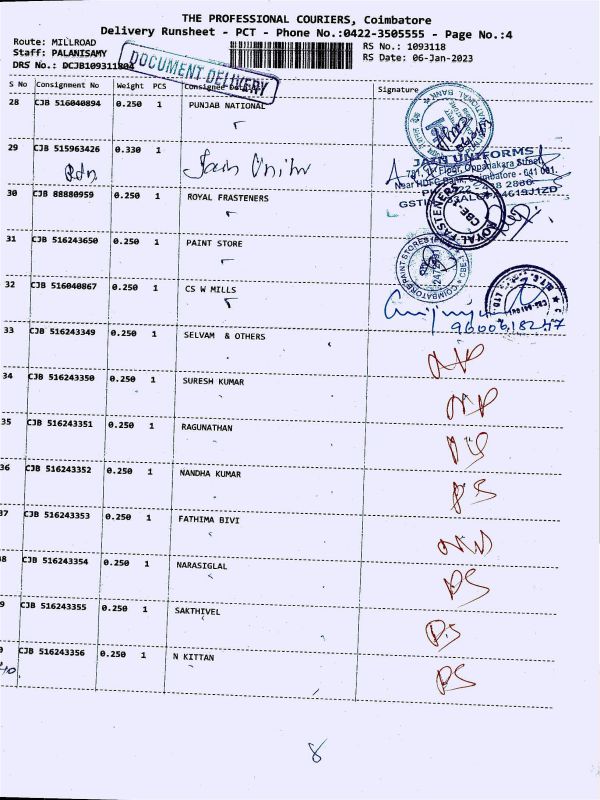 THE PROFESSIONAL COURIERS, Coimbatore
Delivery Runsheet - PCT - Phone No.:0422-3505555 - Page No.:4
Route: MILLROAD
RS No.: 1093118
Staff: PALANISAMY
RS Date: 06-Jan-2023
DRS No.: DCJB109311804
DOCUMENT DELIVERY
S No Consignment No Weight PCS Consignee Details Signature
28 CJB 516040894 0.250 1 PUNJAB NATIONAL
29 CJB 515963426 0.330 1 Jain Unifor
JAIN UNIFORMS
781, 1st Floor, Oppanakara Street,
Coimbatore - 641 001.
30 CJB 88880959 0.250 1 ROYAL FRASTENERS
ROYAL FASTENERS CBE
31 CJB 516243650 0.250 1 PAINT STORE
COIMBATORE PAINT STORES
32 CJB 516040867 0.250 1 CS W MILLS
9600618247
33 CJB 516243349 0.250 1 SELVAM & OTHERS
34 CJB 516243350 0.250 1 SURESH KUMAR
35 CJB 516243351 0.250 1 RAGUNATHAN
36 CJB 516243352 0.250 1 NANDHA KUMAR
37 CJB 516243353 0.250 1 FATHIMA BIVI
38 CJB 516243354 0.250 1 NARASIGLAL
39 CJB 516243355 0.250 1 SAKTHIVEL
CJB 516243356 0.250 1 N KITTAN
8